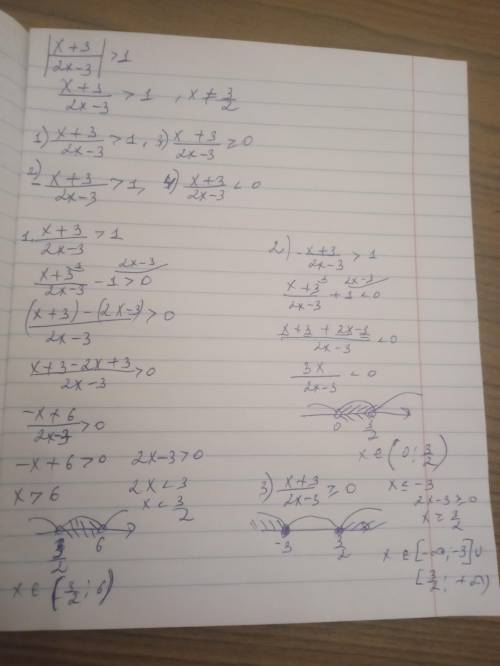 |x+3 / 2x-3| > 1
x+3 / 2x-3 > 1 , x ≠ 3/2
1) x+3 / 2x-3 > 1, 3) x+3 / 2x-3 ≥ 0
2) - x+3 / 2x-3 > 1, 4) x+3 / 2x-3 < 0
1. x+3 / 2x-3 > 1
x+3 / 2x-3 - 1 > 0
(x+3)-(2x-3) / 2x-3 > 0
x+3-2x+3 / 2x-3 > 0
-x+6 / 2x-3 > 0
-x+6>0 2x-3>0
x>6 2x<3
x<3/2
3/2 6
x ∈ (3/2; 6)
2) - x+3 / 2x-3 > 1
x+3 / 2x-3 + 1 < 0
x+3+2x-1 / 2x-3 < 0
3x / 2x-3 < 0
0 3/2
x ∈ (0; 3/2)
3) x+3 / 2x-3 ≥ 0
x ≤ -3
2x-3 ≥ 0
x ≥ 3/2
-3 3/2
x ∈ [-∞; -3] ∪
[3/2; +∞)